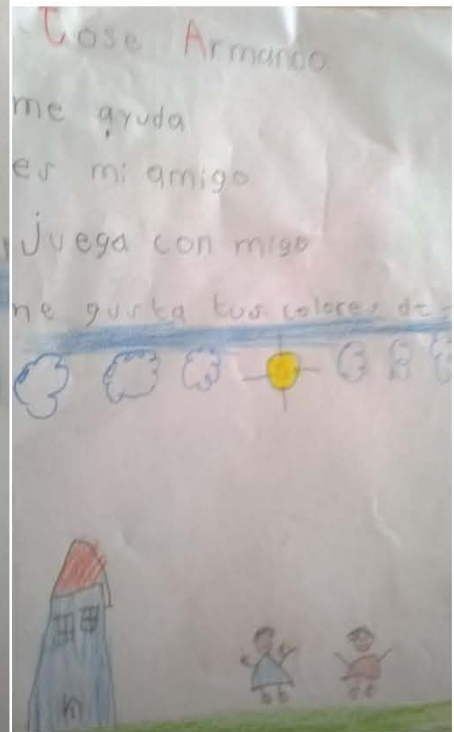 Jose Armando
me ayuda
es mi amigo
juega con migo
me gusta tus colores de